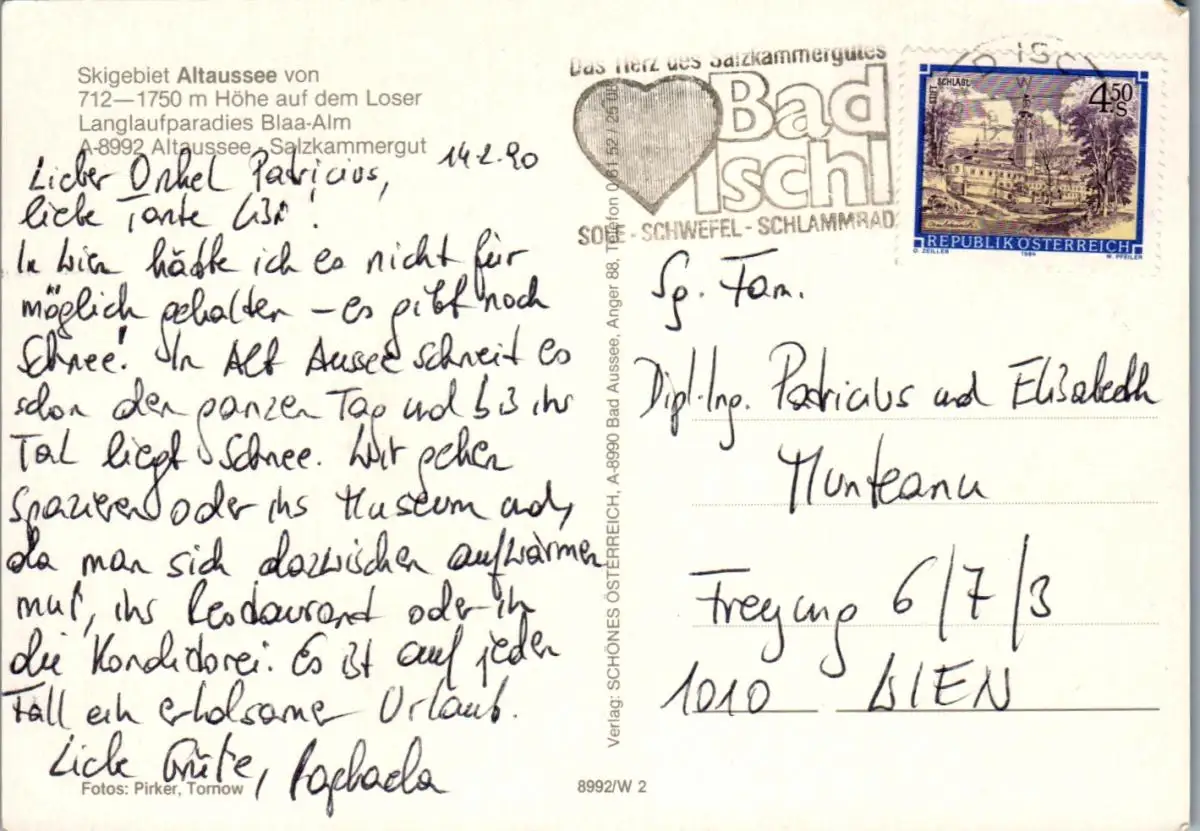 Skigebiet Altaussee von
712—1750 m Höhe auf dem Loser
Langlaufparadies Blaa-Alm
A-8992 Altaussee, Salzkammergut
14.2.90
Lieber Onkel Patricius,
liebe Tante Lisi!
In Wien hätte ich es nicht für
möglich gehalten – es gibt noch
Schnee! In Alt Aussee schneit es
schon den ganzen Tag und bis ins
Tal liegt Schnee. Wir gehen
spazieren oder ins Museum und,
da man sich dazwischen aufwärmen
muß, ins Restaurant oder in
die Konditorei. Es ist auf jeden
Fall ein erholsamer Urlaub.
Liebe Grüße, Raphaela
Fotos: Pirker, Tornow
Verlag: SCHÖNES ÖSTERREICH, A-8990 Bad Aussee, Anger 88, Telefon 0 61 52 / 25 08
8992/W 2
Das Herz des Salzkammergutes
Bad
Ischl
SOLE - SCHWEFEL - SCHLAMMBAD
STIFT SCHLÄGL
4.50 S
REPUBLIK ÖSTERREICH
O. ZEILLER 1984 W. PFEILER
Sg. Fam.
Dipl.-Ing. Patricius und Elisabeth
Munteanu
Freyung 6/7/3
1010 WIEN